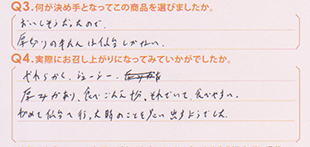 Q3.何が決め手となってこの商品を選びましたか。
おいしそうだったので、
厚切りの牛たんは仙台しかない。
Q4.実際にお召し上がりになってみていかがでしたか。
やわらかく、ジューシー、
厚みがあり、食べごたえ 十分、それでいて、食べやすい。
初めて仙台へ行った時のことを思い出すようでした。